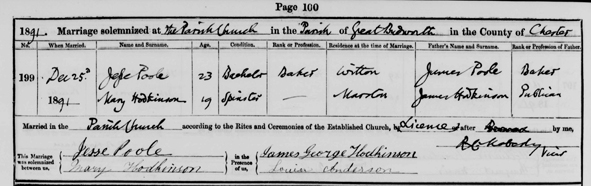 Page 100
1891. Marriage solemnized at the Parish Church in the Parish of Great Budworth in the County of Chester
No. When Married. Name and Surname. Age. Condition. Rank or Profession. Residence at the time of Marriage. Father's Name and Surname. Rank or Profession of Father.
199 Dec 25th Jesse Poole 23 Bachelor Baker Witton James Poole Baker
1891 Mary Hodkinson 19 Spinster — Marston James Hodkinson Publican
Married in the Parish Church according to the Rites and Ceremonies of the Established Church, by Licence after by me,
This Marriage was solemnized between us, Jesse Poole Mary Hodkinson in the Presence of us, James George Hodkinson Anderson Vicar